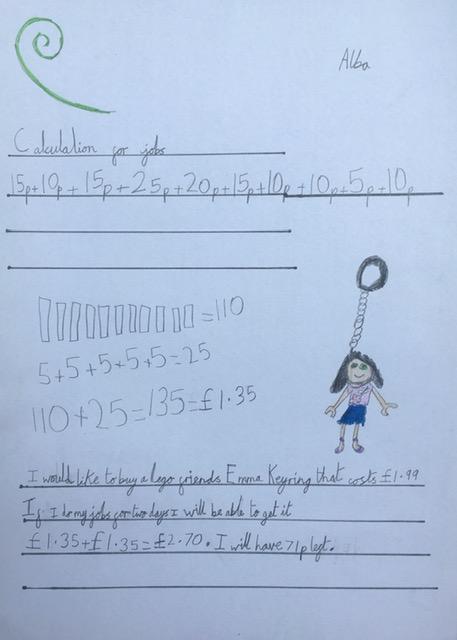 Alba
Calculation for jobs
15p+10p+15p+25p+20p+15p+10p+10p+5p+10p
=110
5+5+5+5+5=25
110+25=135=£1.35
I would like to buy a lego friends Emma Keyring that costs £1.99
If I do my jobs for two days I will be able to get it
£1.35+£1.35=£2.70. I will have 71p left.